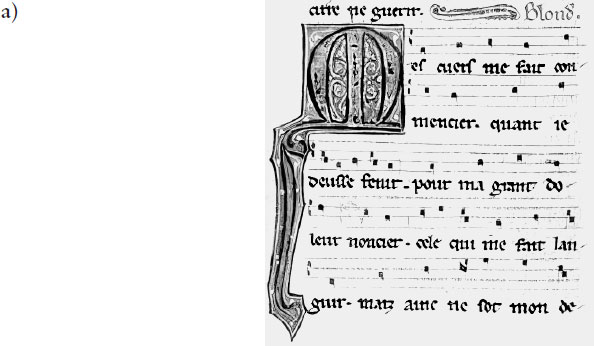 a)
cure ne guerir. Blond'.
Mes cuers me fait con
mencier. quant ie
deusse fenir. pour ma grant do
leur noncier. cele qui me fait lan
guir. maiz ainc ne sot mon de